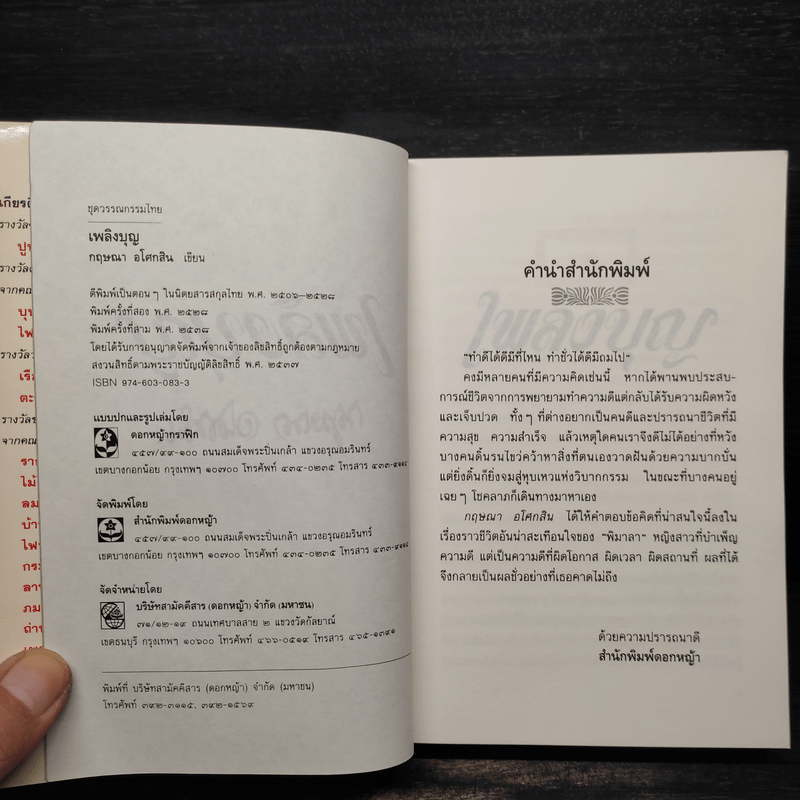 เกียรติ
รางวัล
ปู
รางวัล
จากคณ
บุ
ไฟ
รางวัล
เรือ
ตะ
รางวัล
จากคณ
ราก
ไม้
ลม
บ้า
ไฟ
กระ
ลา
ภม
ถ่า
ชุดวรรณกรรมไทย
เพลิงบุญ
กฤษณา อโศกสิน เขียน
ตีพิมพ์เป็นตอนๆ ในนิตยสารสกุลไทย พ.ศ. ๒๕๐๖–๒๕๒๘
พิมพ์ครั้งที่สอง พ.ศ. ๒๕๒๘
พิมพ์ครั้งที่สาม พ.ศ. ๒๕๓๘
โดยได้รับการอนุญาตจัดพิมพ์จากเจ้าของลิขสิทธิ์ถูกต้องตามกฎหมาย
สงวนสิทธิ์ตามพระราชบัญญัติลิขสิทธิ์ พ.ศ. ๒๕๓๗
ISBN 974-603-083-3
แบบปกและรูปเล่มโดย
ดอกหญ้ากราฟิก
๔๕๗/๙๙-๑๐๐ ถนนสมเด็จพระปิ่นเกล้า แขวงอรุณอมรินทร์
เขตบางกอกน้อย กรุงเทพฯ ๑๐๗๐๐ โทรศัพท์ ๔๓๔-๐๒๓๕ โทรสาร ๔๓๓-๙๑๑๔
จัดพิมพ์โดย
สำนักพิมพ์ดอกหญ้า
๔๕๗/๙๙-๑๐๐ ถนนสมเด็จพระปิ่นเกล้า แขวงอรุณอมรินทร์
เขตบางกอกน้อย กรุงเทพฯ ๑๐๗๐๐ โทรศัพท์ ๔๓๔-๐๒๓๕ โทรสาร ๔๓๓-๙๑๑๔
จัดจำหน่ายโดย
บริษัทสามัคคีสาร (ดอกหญ้า) จำกัด (มหาชน)
๗๑/๑๒-๑๙ ถนนเทศบาลสาย ๒ แขวงวัดกัลยาณ์
เขตธนบุรี กรุงเทพฯ ๑๐๖๐๐ โทรศัพท์ ๔๖๖-๐๕๑๙ โทรสาร ๔๖๕-๑๓๙๑
พิมพ์ที่ บริษัทสามัคคีสาร (ดอกหญ้า) จำกัด (มหาชน)
โทรศัพท์ ๓๙๒-๓๑๑๕, ๓๙๒-๑๕๖๙
คำนำสำนักพิมพ์
"ทำดีได้ดีมีที่ไหน ทำชั่วได้ดีมีถมไป"
คงมีหลายคนที่มีความคิดเช่นนี้ หากได้พานพบประสบ-
การณ์ชีวิตจากการพยายามทำความดีแต่กลับได้รับความผิดหวัง
และเจ็บปวด ทั้งๆ ที่ต่างอยากเป็นคนดีและปรารถนาชีวิตที่มี
ความสุข ความสำเร็จ แล้วเหตุใดคนเราจึงดีไม่ได้อย่างที่หวัง
บางคนดิ้นรนไขว่คว้าหาสิ่งที่ตนเองวาดฝันด้วยความบากบั่น
แต่ยิ่งดิ้นก็ยิ่งจมสู่หุบเหวแห่งวิบากกรรม ในขณะที่บางคนอยู่
เฉยๆ โชคลาภก็เดินทางมาหาเอง
กฤษณา อโศกสิน ได้ให้คำตอบข้อคิดที่น่าสนใจนี้ลงใน
เรื่องราวชีวิตอันน่าสะเทือนใจของ "พิมาลา" หญิงสาวที่บำเพ็ญ
ความดี แต่เป็นความดีที่ผิดโอกาส ผิดเวลา ผิดสถานที่ ผลที่ได้
จึงกลายเป็นผลชั่วอย่างที่เธอคาดไม่ถึง
ด้วยความปรารถนาดี
สำนักพิมพ์ดอกหญ้า